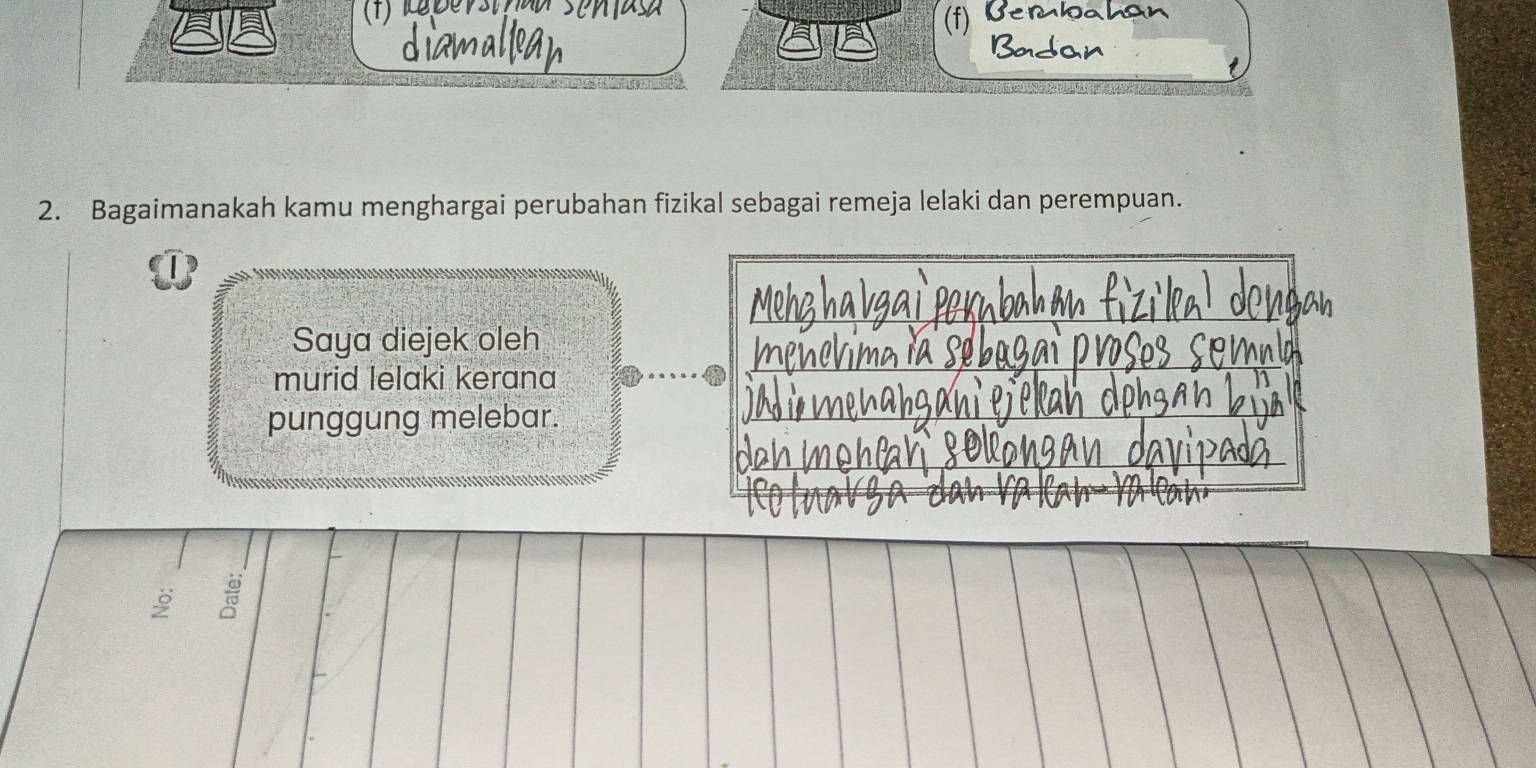 (f) kebersihan sentiasa
diamalkan
(f) Bembahan
Badan
2. Bagaimanakah kamu menghargai perubahan fizikal sebagai remeja lelaki dan perempuan.
1
Saya diejek oleh
murid lelaki kerana
punggung melebar.
Menghargai perubahan fizikal dengan
menerima ia sebagai proses semula
jadi menangani ejekan dengan bijak
dan mencari sokongan daripada
keluarga dan rakan-rakan.
No:
Date: